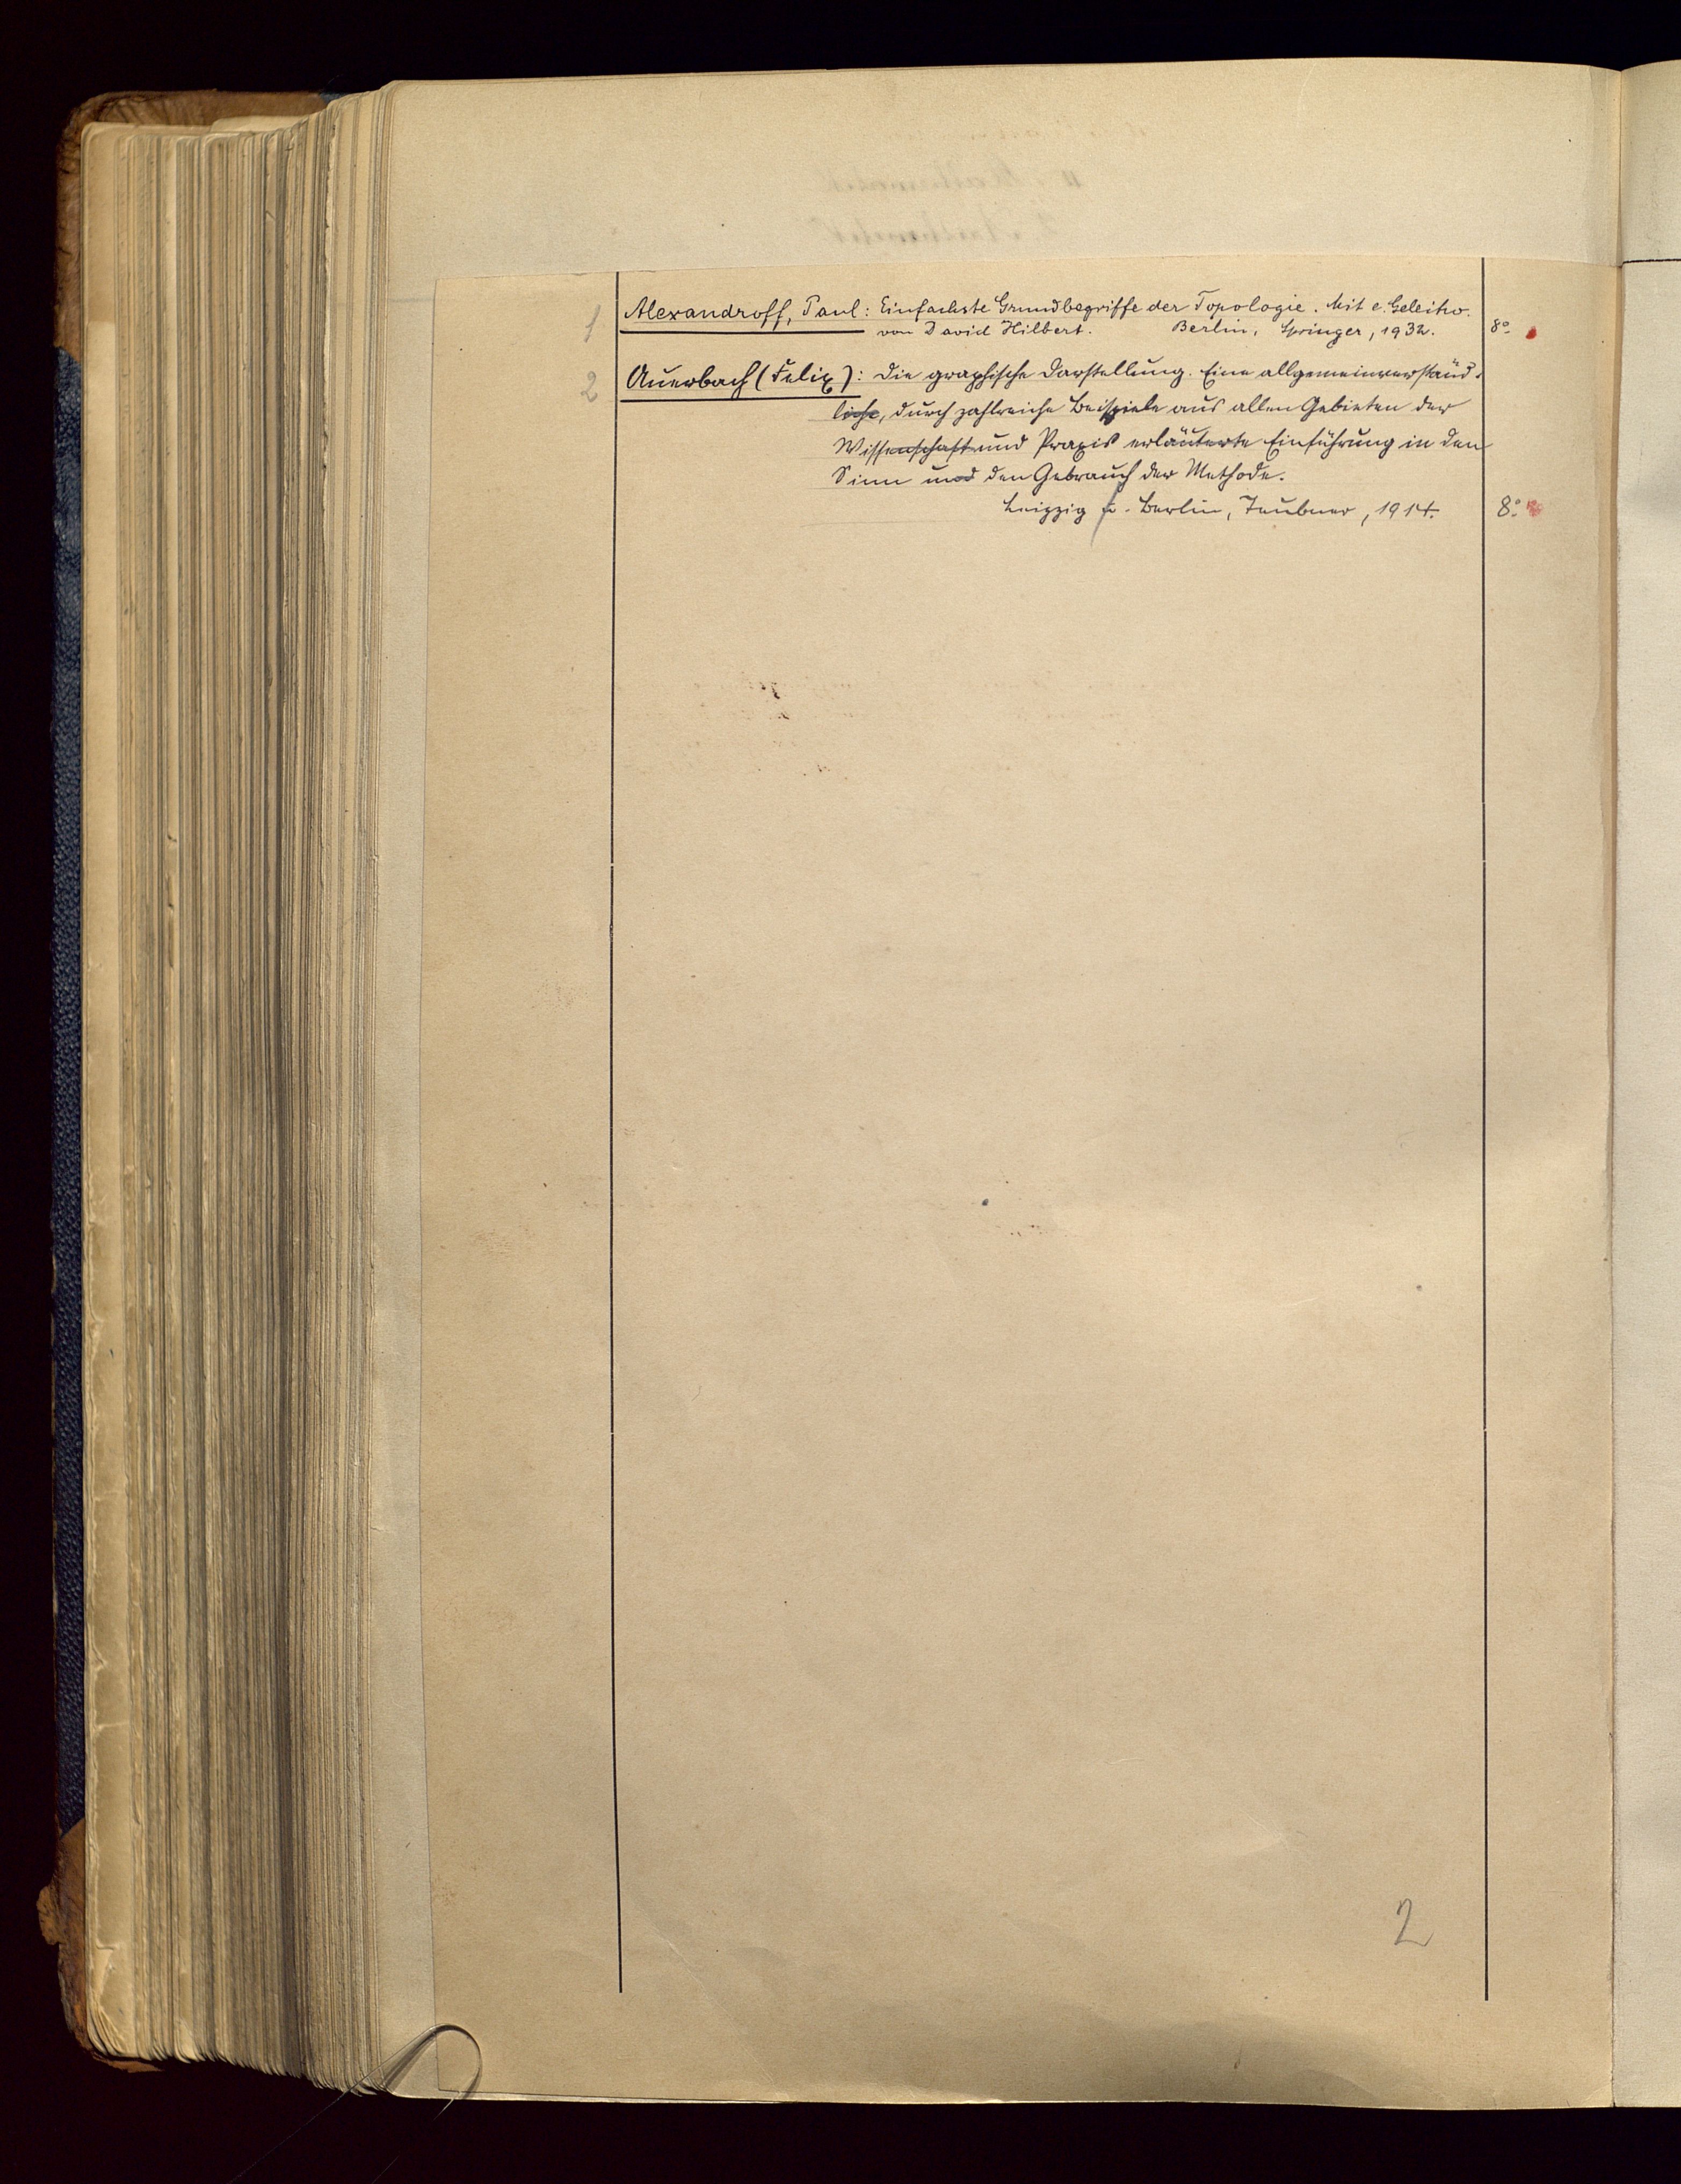 1 Alexandroff, Paul: Einfachste Grundbegriffe der Topologie. Mit e. Geleitw.
von David Hilbert. Berlin, Springer, 1932. 8°
2 Auerbach (Felix): Die graphische Darstellung. Eine allgemeinverständ-
liche, durch zahlreiche Beispiele aus allen Gebieten der
Wissenschaft und Praxis erläuterte Einführung in den
Sinn und den Gebrauch der Methode.
Leipzig u. Berlin, Teubner, 1914. 8°
2